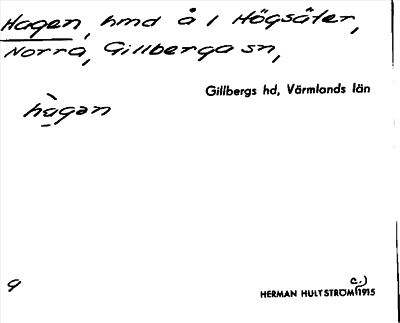 Hagen, hmd å 1 Högsäter,
Norra, Gillberga sn,
Gillbergs hd, Värmlands län
hàgən
9
HERMAN HULTSTRÖM (c.) 1915